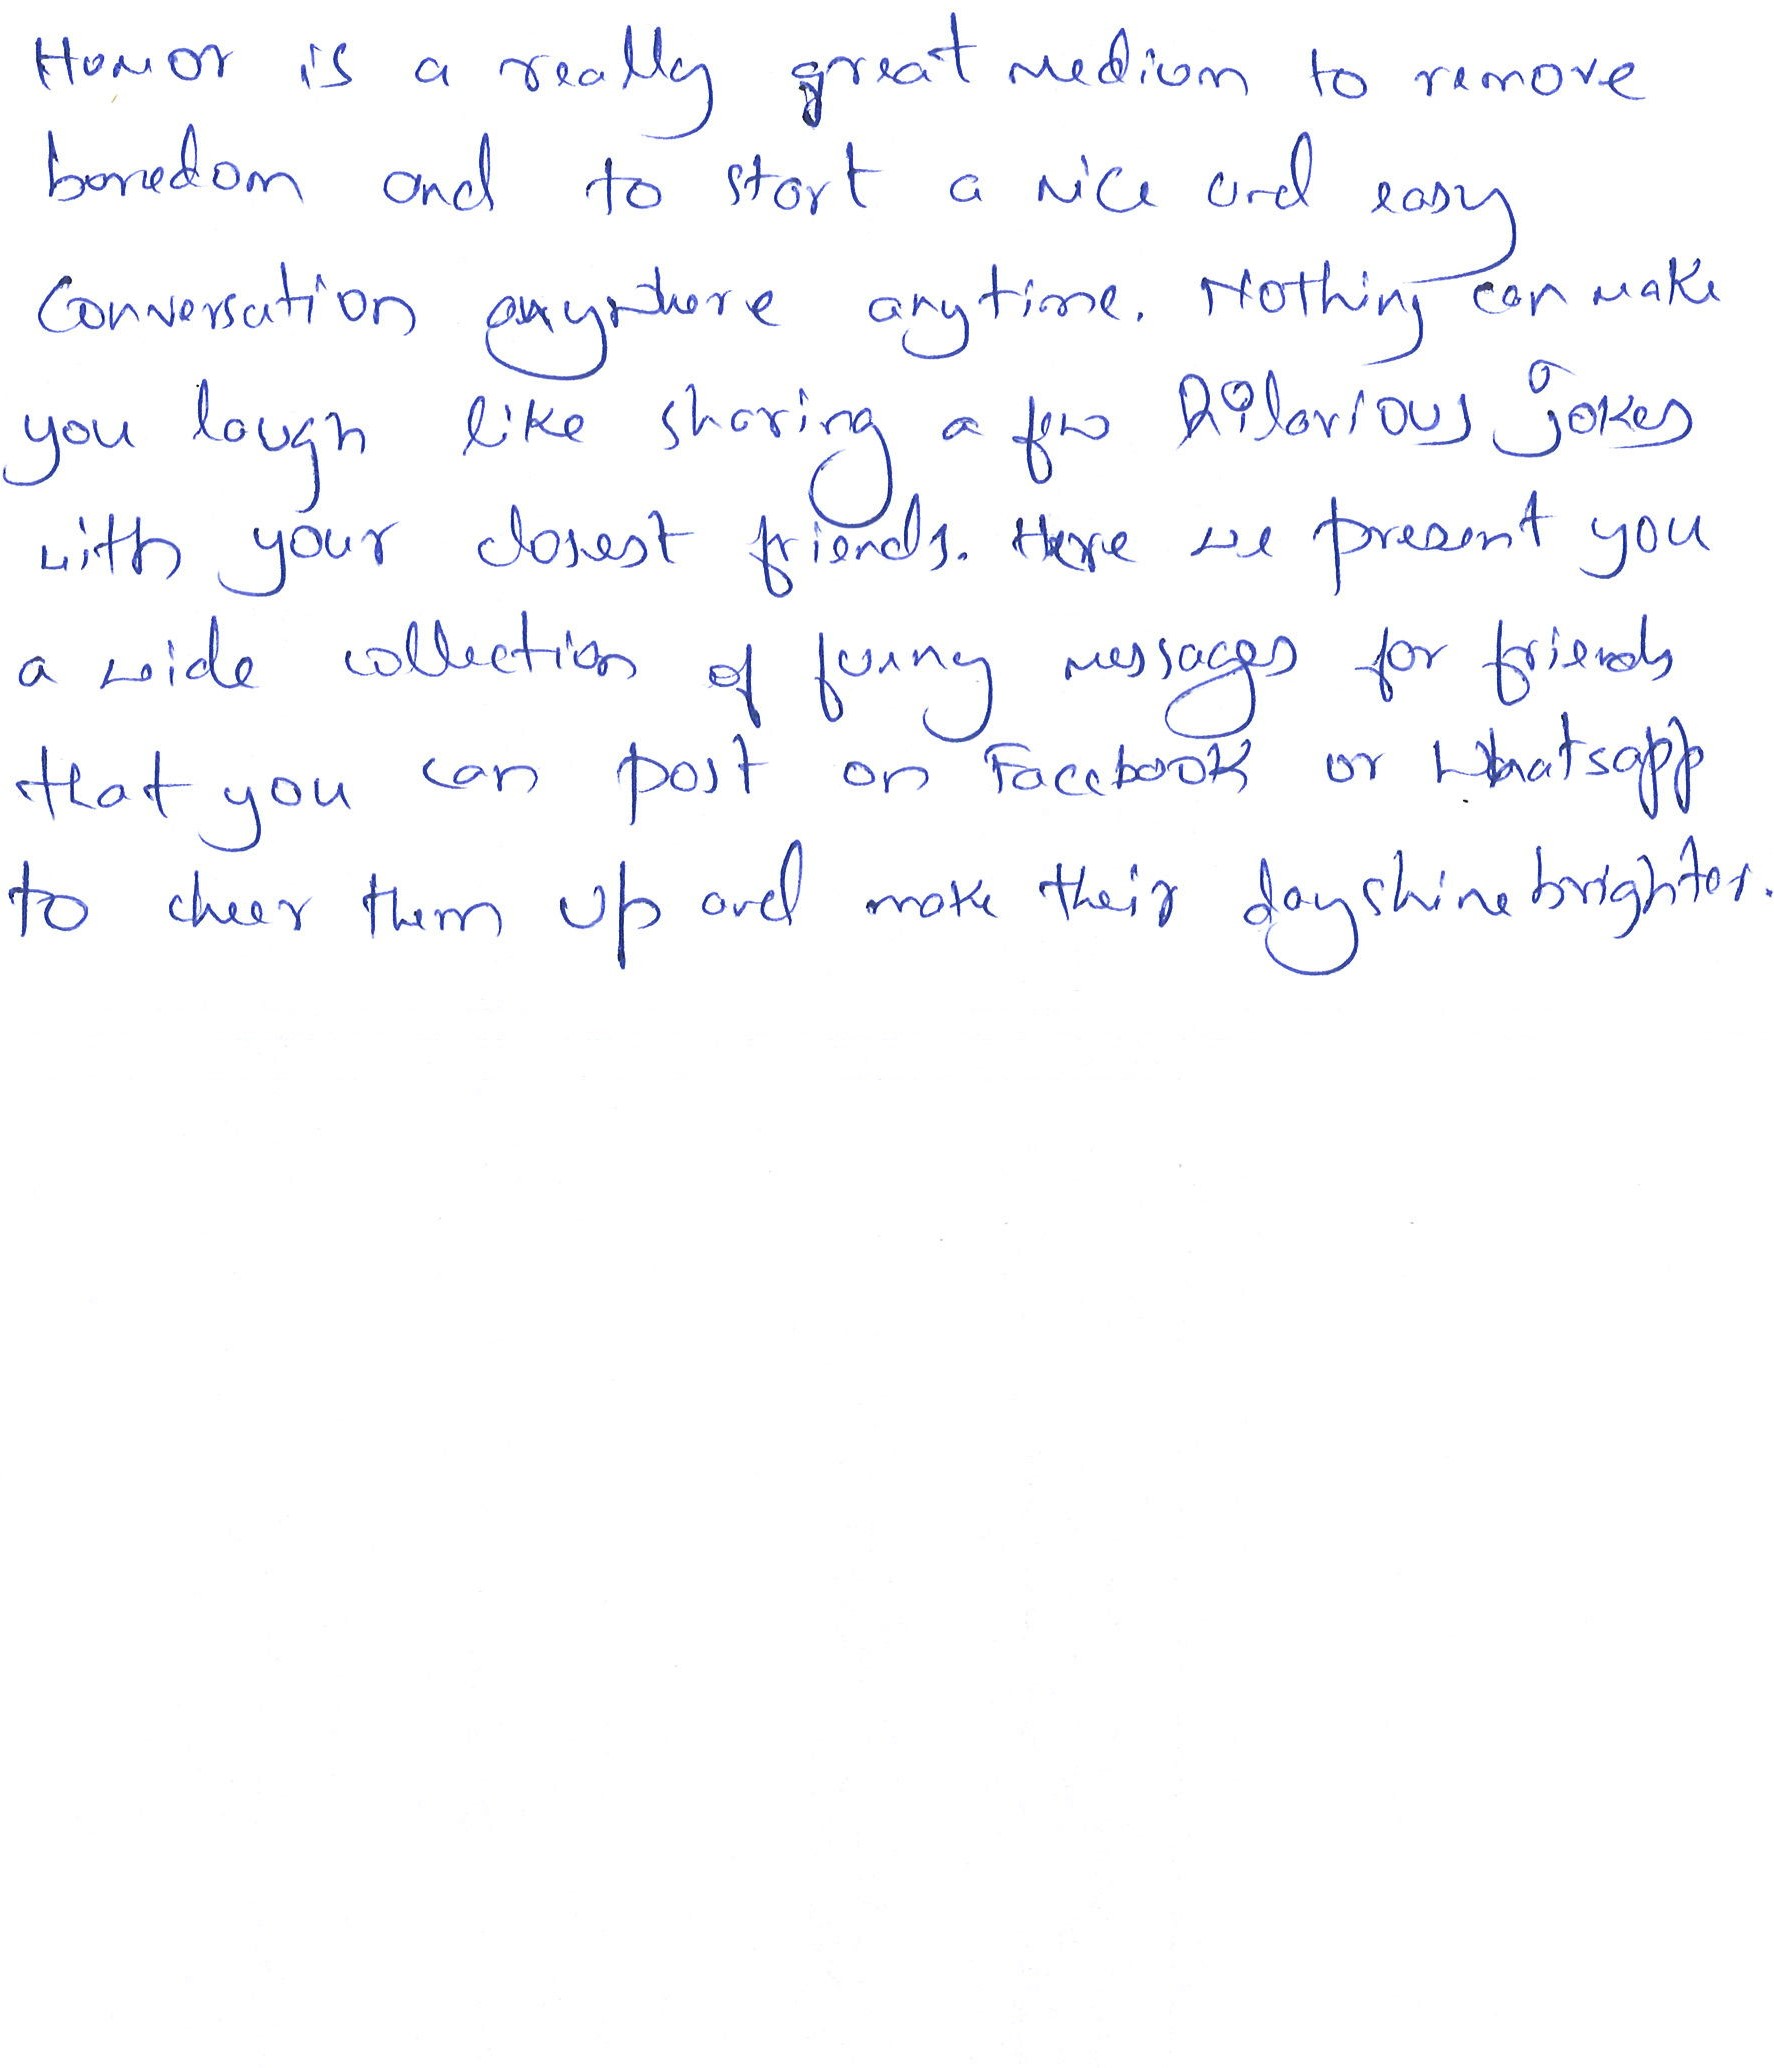 Humor is a really great medium to remove
boredom and to start a nice and easy
Conversation anywhere anytime. Nothing can make
you laugh like sharing a few hilarious jokes
with your closest friends. Here we present you
a wide collection of funny messages for friends
that you can post on Facebook or Whatsapp
to cheer them up and make their day shine brighter.